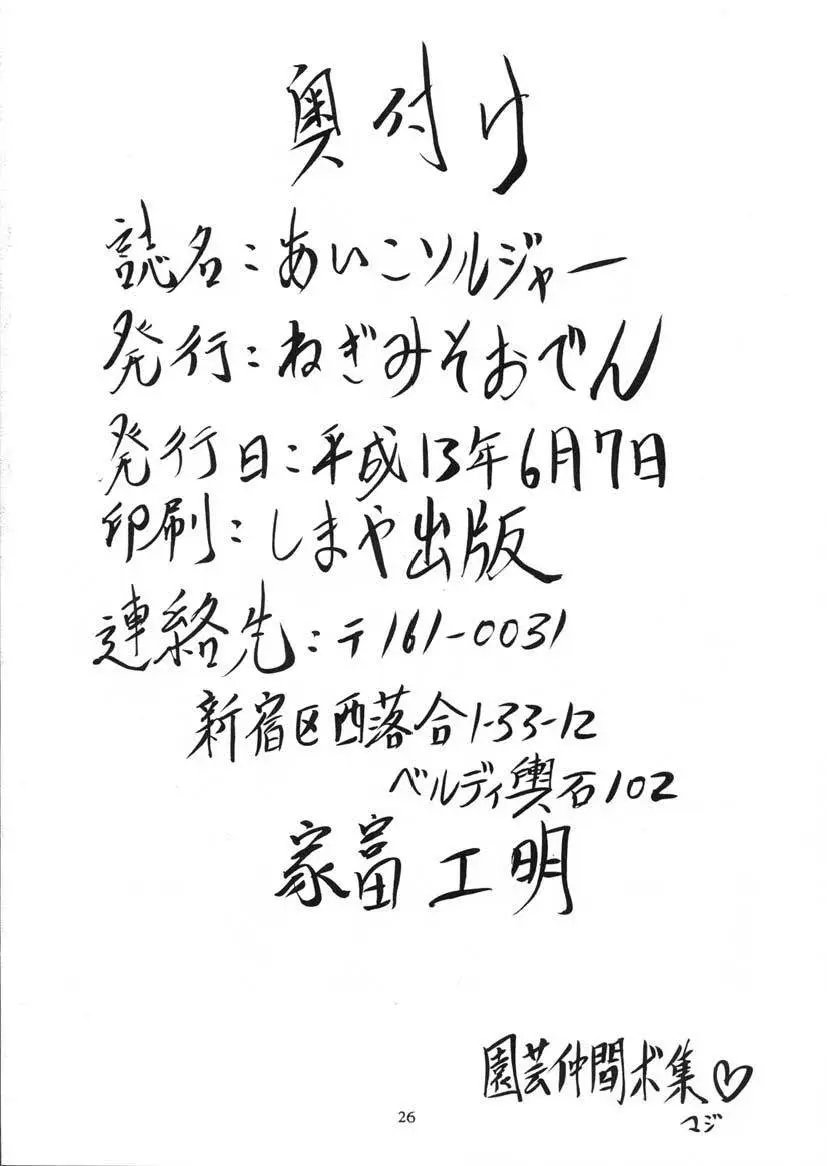 奥付け
誌名：あいこソルジャー
発行：ねぎみそおでん
発行日：平成13年6月7日
印刷：しまや出版
連絡先：〒161-0031
新宿区西落合1-33-12
ベルディ輿石102
家富 工明
園芸仲間ボ集♡
マジ
26